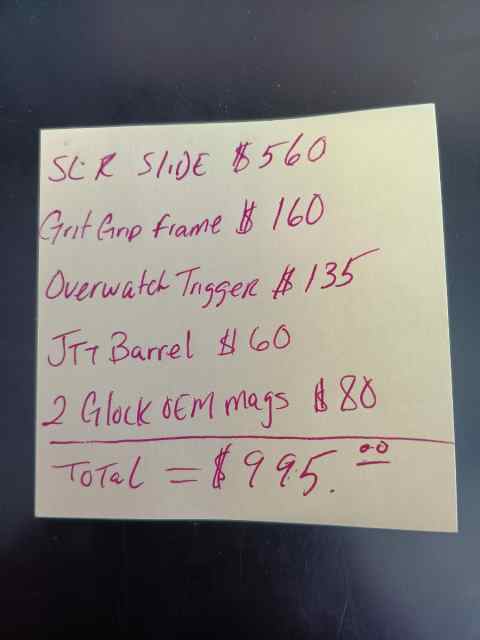 SCR SLIDE $560
Grit Grip frame $160
Overwatch Trigger $135
JTT Barrel $60
2 Glock OEM mags $80
Total = $995.00